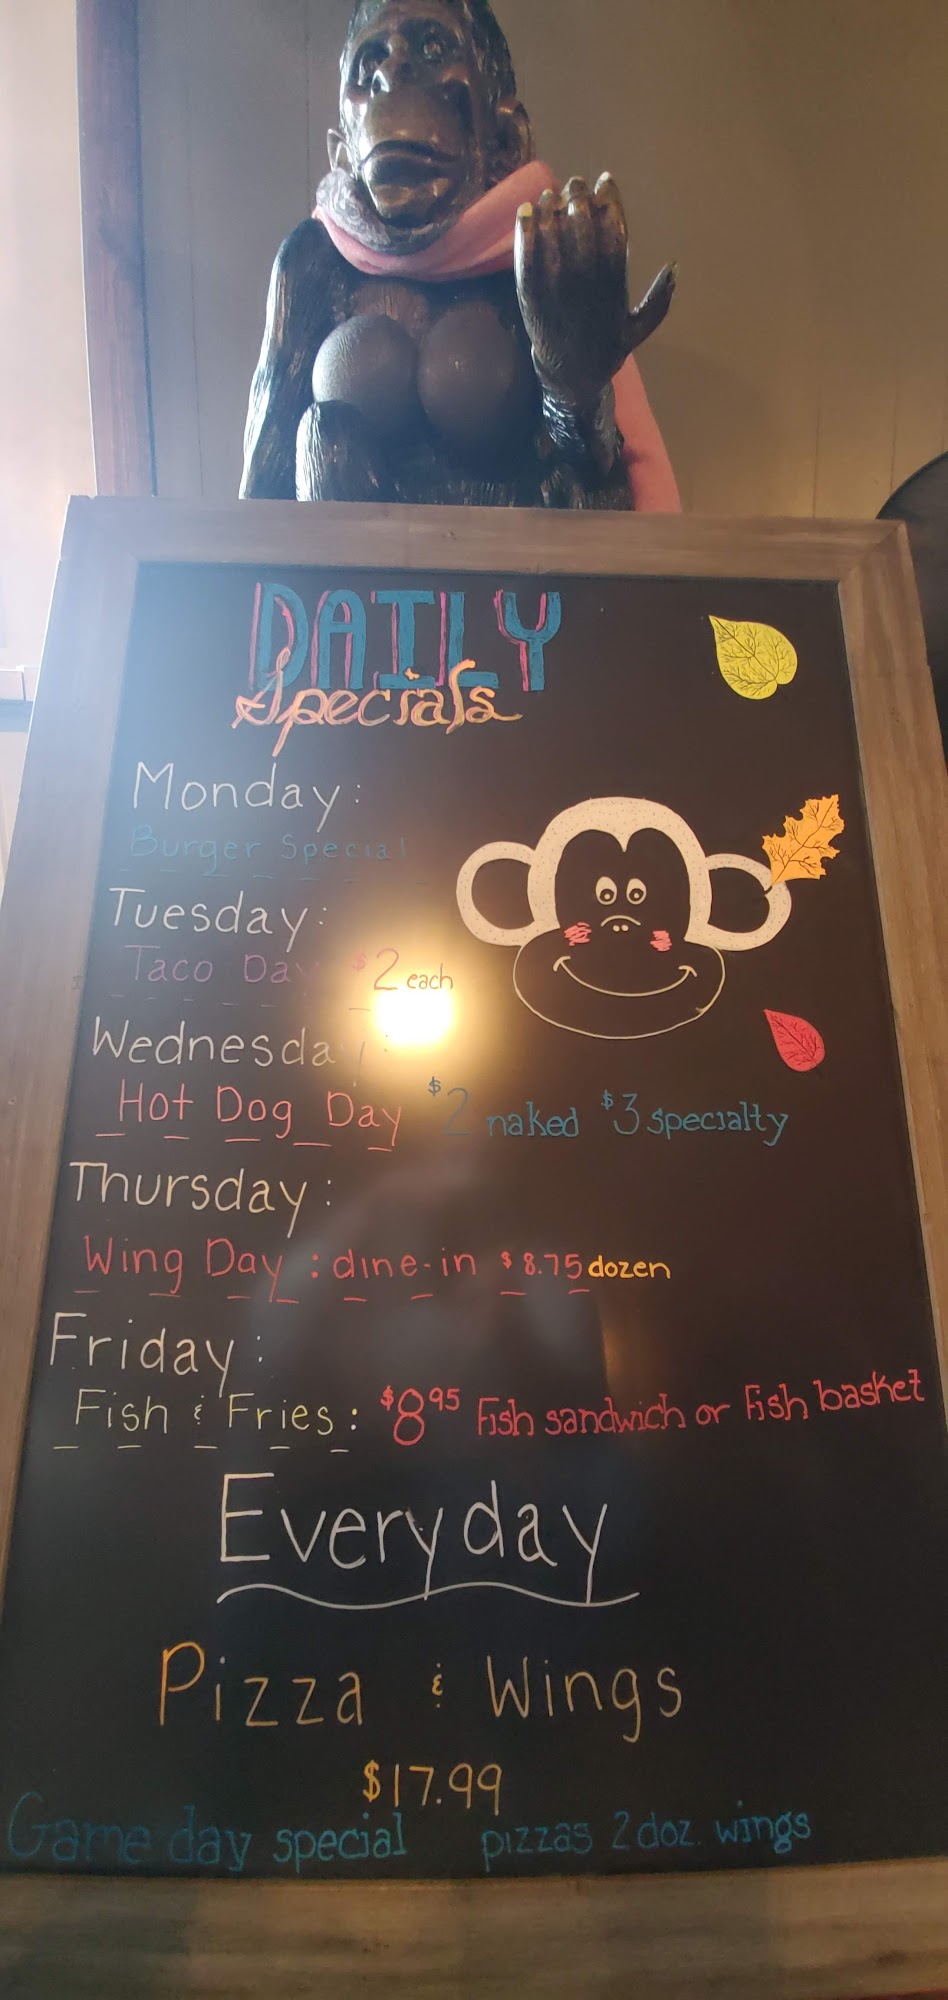 DAILY
Specials
Monday:
Burger Special
Tuesday:
Taco Day $2 each
Wednesday:
Hot Dog Day $2 naked $3 specialty
Thursday:
Wing Day: dine-in $8.75 dozen
Friday:
Fish & Fries: $8.95 Fish sandwich or Fish basket
Everyday
Pizza & Wings
$17.99
Game day special pizzas 2 doz. wings